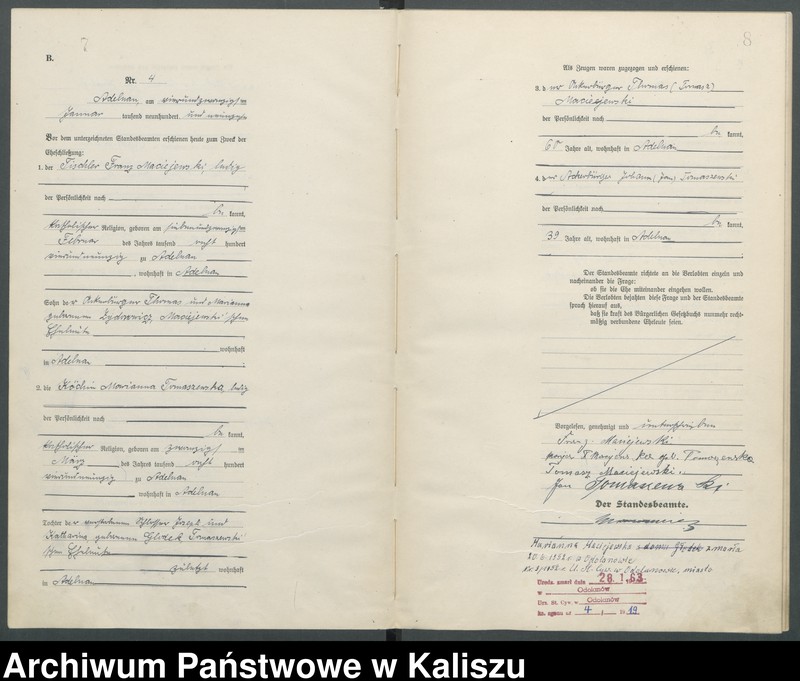 7
B.
Nr. 4
Adelnau, am vierundzwanzigsten
Januar tausend neunhundert und neunzehn
Vor dem unterzeichneten Standesbeamten erschienen heute zum Zweck der
Eheschließung:
1. der Tischler Franz Maciejewski, ledig
der Persönlichkeit nach
be kannt,
katholischer Religion, geboren am siebenundzwanzigsten
Februar des Jahres tausend acht hundert
vierundneunzig zu Adelnau
, wohnhaft in Adelnau
Sohn der Ackerbürger Thomas und Marianna
geborenen Maciejewski'schen
Eheleute
wohnhaft
in Adelnau
2. die Köchin Marianna Tomaszewska, ledig
der Persönlichkeit nach
be kannt,
katholischer Religion, geboren am zwanzigsten
März des Jahres tausend acht hundert
vierundneunzig zu Adelnau
, wohnhaft in Adelnau
Tochter der verstorbenen Schlosser Josef und
Katharina geborenen Glidek Tomaszewski
schen Eheleute
zuletzt wohnhaft
in Adelnau
8
Als Zeugen waren zugezogen und erschienen:
3. der Ackerbürger Thomas (Tomasz)
Maciejewski
der Persönlichkeit nach
be kannt,
Jahre alt, wohnhaft in Adelnau
4. der Ackerbürger Johann (Jan) Tomaszewski
der Persönlichkeit nach
be kannt,
39 Jahre alt, wohnhaft in Adelnau
Der Standesbeamte richtete an die Verlobten einzeln und
nacheinander die Frage:
ob sie die Ehe miteinander eingehen wollen.
Die Verlobten bejahten diese Frage und der Standesbeamte
sprach hierauf aus,
daß sie kraft des Bürgerlichen Gesetzbuchs nunmehr recht-
mäßig verbundene Eheleute seien.
Vorgelesen, genehmigt und unterschrieben
Franz Maciejewski
Tomasz Maciejewski
Jan Tomaszewski
Der Standesbeamte.
Marianna Maciejewska z domu zmarła
w Odolanowie
U. St. Cyw. w Odolanowie, miasto
28.1.63
w Odolanów
Urz. St. Cyw. w Odolanów
4 19 19
Archiwum Państwowe w Kaliszu